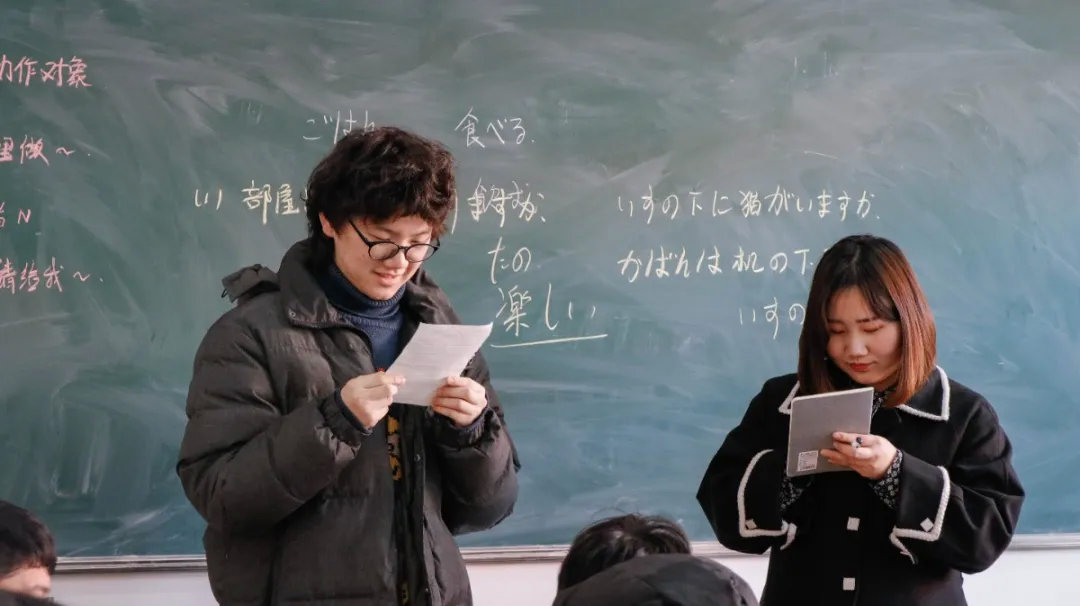 作对象
做~.
N
请给我~.
ごはん 食べる.
い) 部屋 ますか.
たの
楽しい
いすの下に猫がいますか.
かばんは机の下
いすの